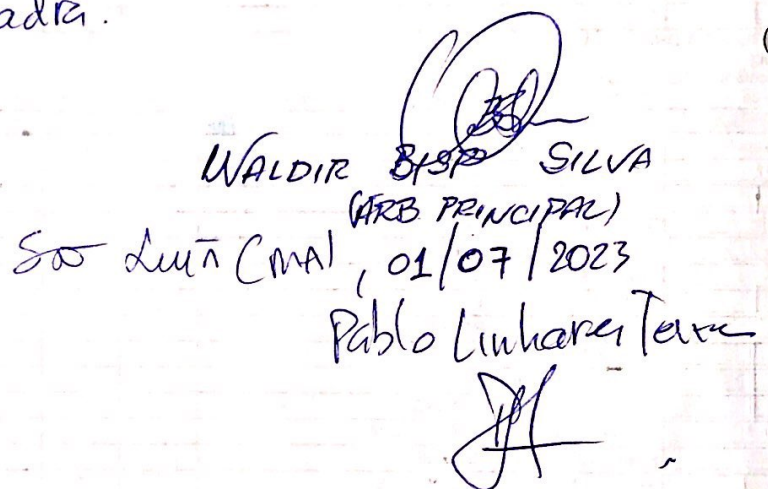 adra.
WALDIR BISPO SILVA
(ARB PRINCIPAL)
São Luís (MA), 01/07/2023
Pablo Linhares